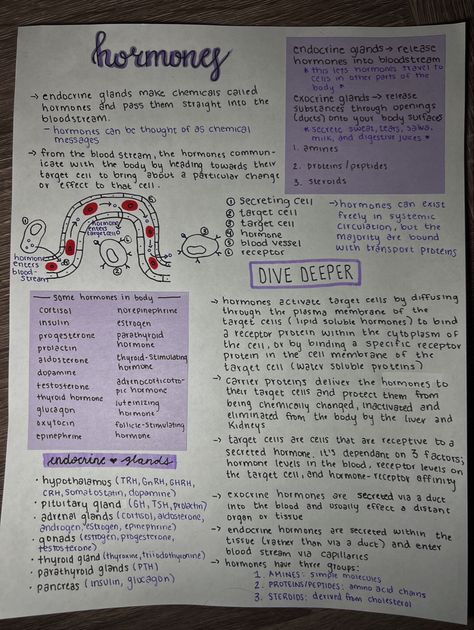 hormones
→ endocrine glands make chemicals called
hormones and pass them straight into the
bloodstream.
- hormones can be thought of as chemical
messages
→ from the blood stream, the hormones commun-
icate with the body by heading towards their
target cell to bring about a particular change
or effect to that cell.
endocrine glands → release
hormones into bloodstream
* this lets hormones travel to
cells in other parts of the
body *
exocrine glands → release
substances through openings
(ducts) onto your body surfaces
* secrete sweat, tears, saliva,
milk, and digestive juices *
1. amines
2. proteins/peptides
3. steroids
hormone
enters
blood-
stream
hormone
enters
target cell
① secreting cell
② target cell
③ target cell
④ hormone
⑤ blood vessel
⑥ receptor
→ hormones can exist
freely in systemic
circulation, but the
majority are bound
with transport proteins
some hormones in body
cortisol
insulin
progesterone
prolactin
aldosterone
dopamine
testosterone
thyroid hormone
glucagon
oxytocin
epinephrine
norepinephrine
estrogen
parathyroid
hormone
thyroid-stimulating
hormone
adrenocorticotro-
pic hormone
luteinizing
hormone
follicle-stimulating
hormone
endocrine ♥ glands
• hypothalamus (TRH, GnRH, GHRH,
CRH, somatostatin, dopamine)
• pituitary gland (GH, TSH, prolactin)
• adrenal glands (cortisol, aldosterone,
androgen, estrogen, epinephrine)
• gonads (estrogen, progesterone,
testosterone)
• thyroid gland (thyroxine, triiodothyronine)
• parathyroid glands (PTH)
• pancreas (insulin, glucagon)
DIVE DEEPER
→ hormones activate target cells by diffusing
through the plasma membrane of the
target cells (lipid soluble hormones) to bind
a receptor protein within the cytoplasm of
the cell, or by binding a specific receptor
protein in the cell membrane of the
target cell (water soluble proteins)
→ carrier proteins deliver the hormones to
their target cells and protect them from
being chemically changed, inactivated and
eliminated from the body by the liver and
kidneys
→ target cells are cells that are receptive to a
secreted hormone. it's dependant on 3 factors;
hormone levels in the blood, receptor levels on
the target cell, and hormone-receptor affinity
→ exocrine hormones are secreted via a duct
into the blood and usually effect a distant
organ or tissue
→ endocrine hormones are secreted within the
tissue (rather than via a duct) and enter
blood stream via capillaries
→ hormones have three groups:
1. AMINES: simple molecules
2. PROTEINS/PEPTIDES: amino acid chains
3. STEROIDS: derived from cholesterol